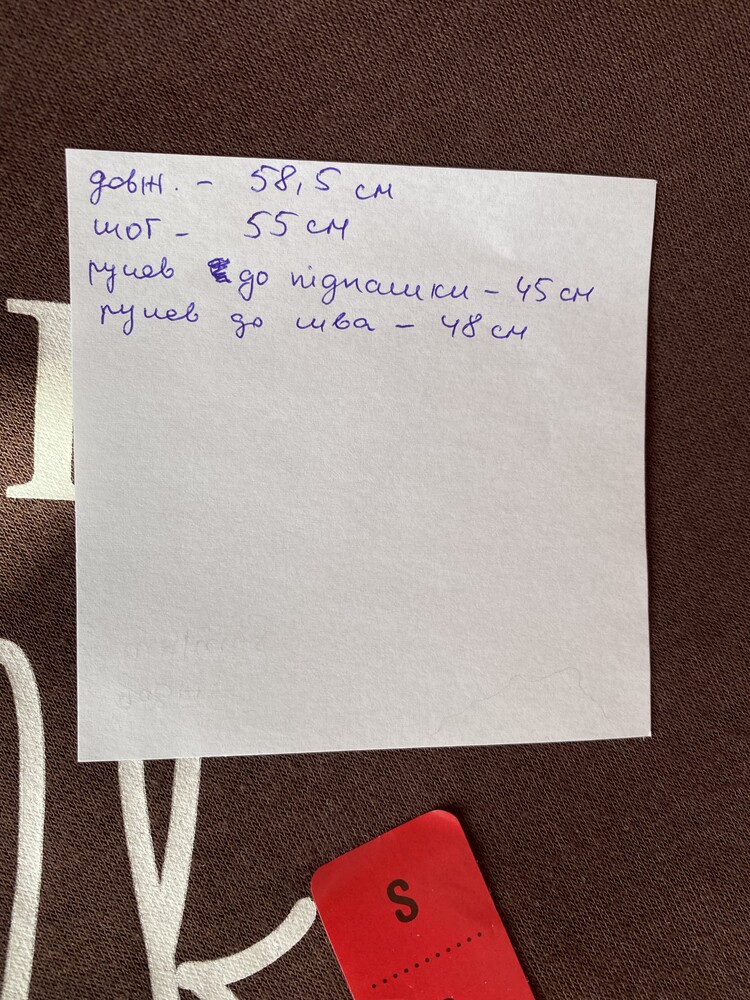 довж. - 58,5 см
шог - 55 см
рукав до підпашки - 45 см
рукав до шва - 48 см
S